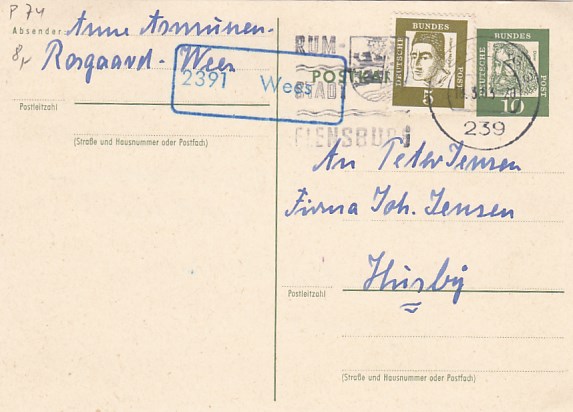 P 74
8,-
Absender: Anne Asmussen
Rosgaard - Wees
2391 Wees
Postleitzahl
(Straße und Hausnummer oder Postfach)
RUM-
STADT
FLENSBURG
POSTKAR
DEUTSCHE BUNDESPOST
5
DEUTSCHE BUNDESPOST
10
239
An Peter Jensen
Firma Joh. Jensen
Hüsby
Postleitzahl
(Straße und Hausnummer oder Postfach)